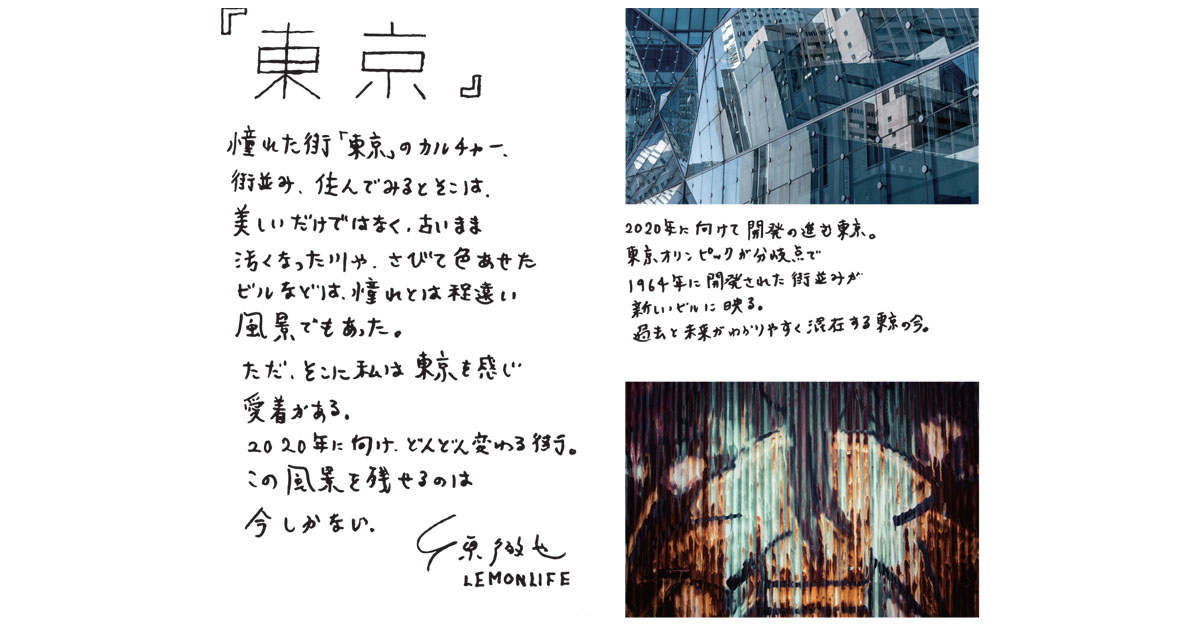 『東京』
憧れた街「東京」のカルチャー、
街並み、住んでみるとそこは、
美しいだけではなく、古いまま
汚くなった川や、さびて色あせた
ビルなどは、憧れとは程遠い
風景でもあった。
ただ、そこに私は東京を感じ
愛着がある。
2020年に向け、どんどん変わる街。
この風景を残せるのは
今しかない。
原徹也
LEMONLIFE
2020年に向けて開発の進む東京。
東京オリンピックが分岐点で
1964年に開発された街並みが
新しいビルに映る。
過去と未来がわかりやすく混在する東京の今。